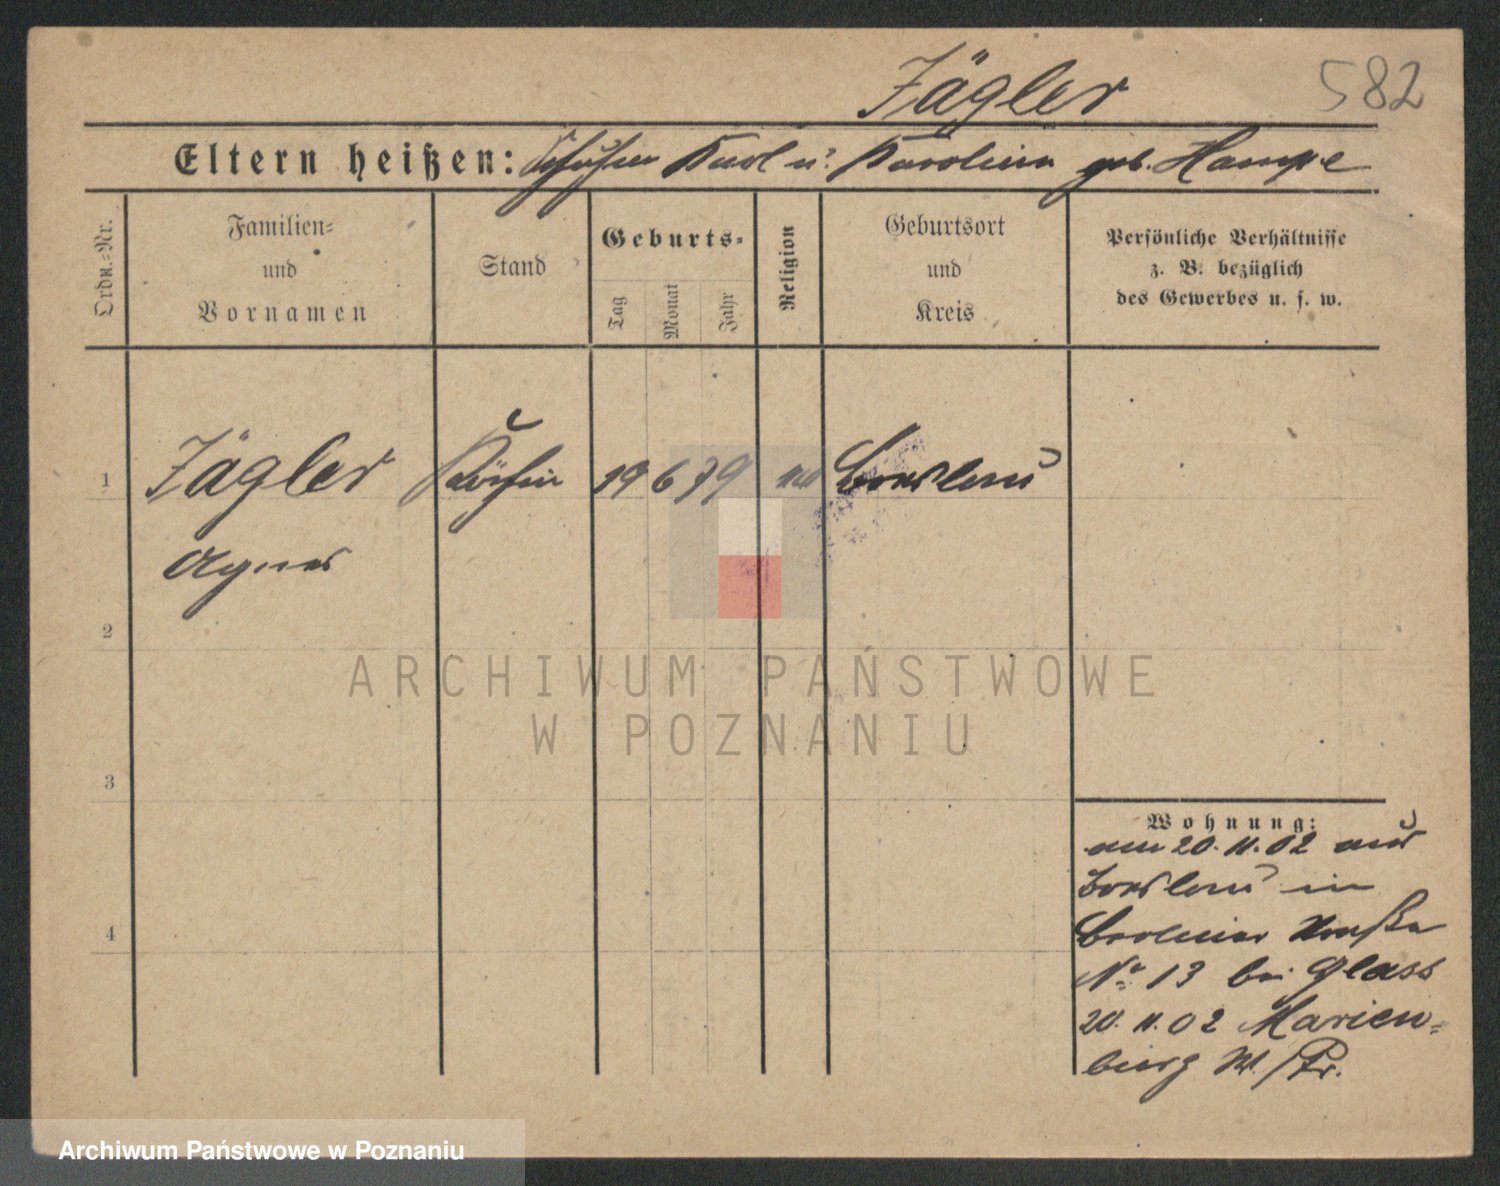 Jägler
582
Eltern heißen: Karl u. Karolina geb. Hampe
Ordn.-Nr.
Familien-
und
Vornamen
Stand
Geburts-
Tag
Monat
Jahr
Religion
Geburtsort
und
Kreis
Persönliche Verhältnisse
z. B. bezüglich
des Gewerbes u. s. w.
1
Jägler Köchin 19 6 79 Breslau
Agnes
2
3
4
ARCHIWUM PAŃSTWOWE
W POZNANIU
Wohnung:
am 20. 11. 02 aus
Breslau in
Berliner Straße
No 13 bei Glass
20. 11. 02 Marien-
burg W./Pr.
Archiwum Państwowe w Poznaniu